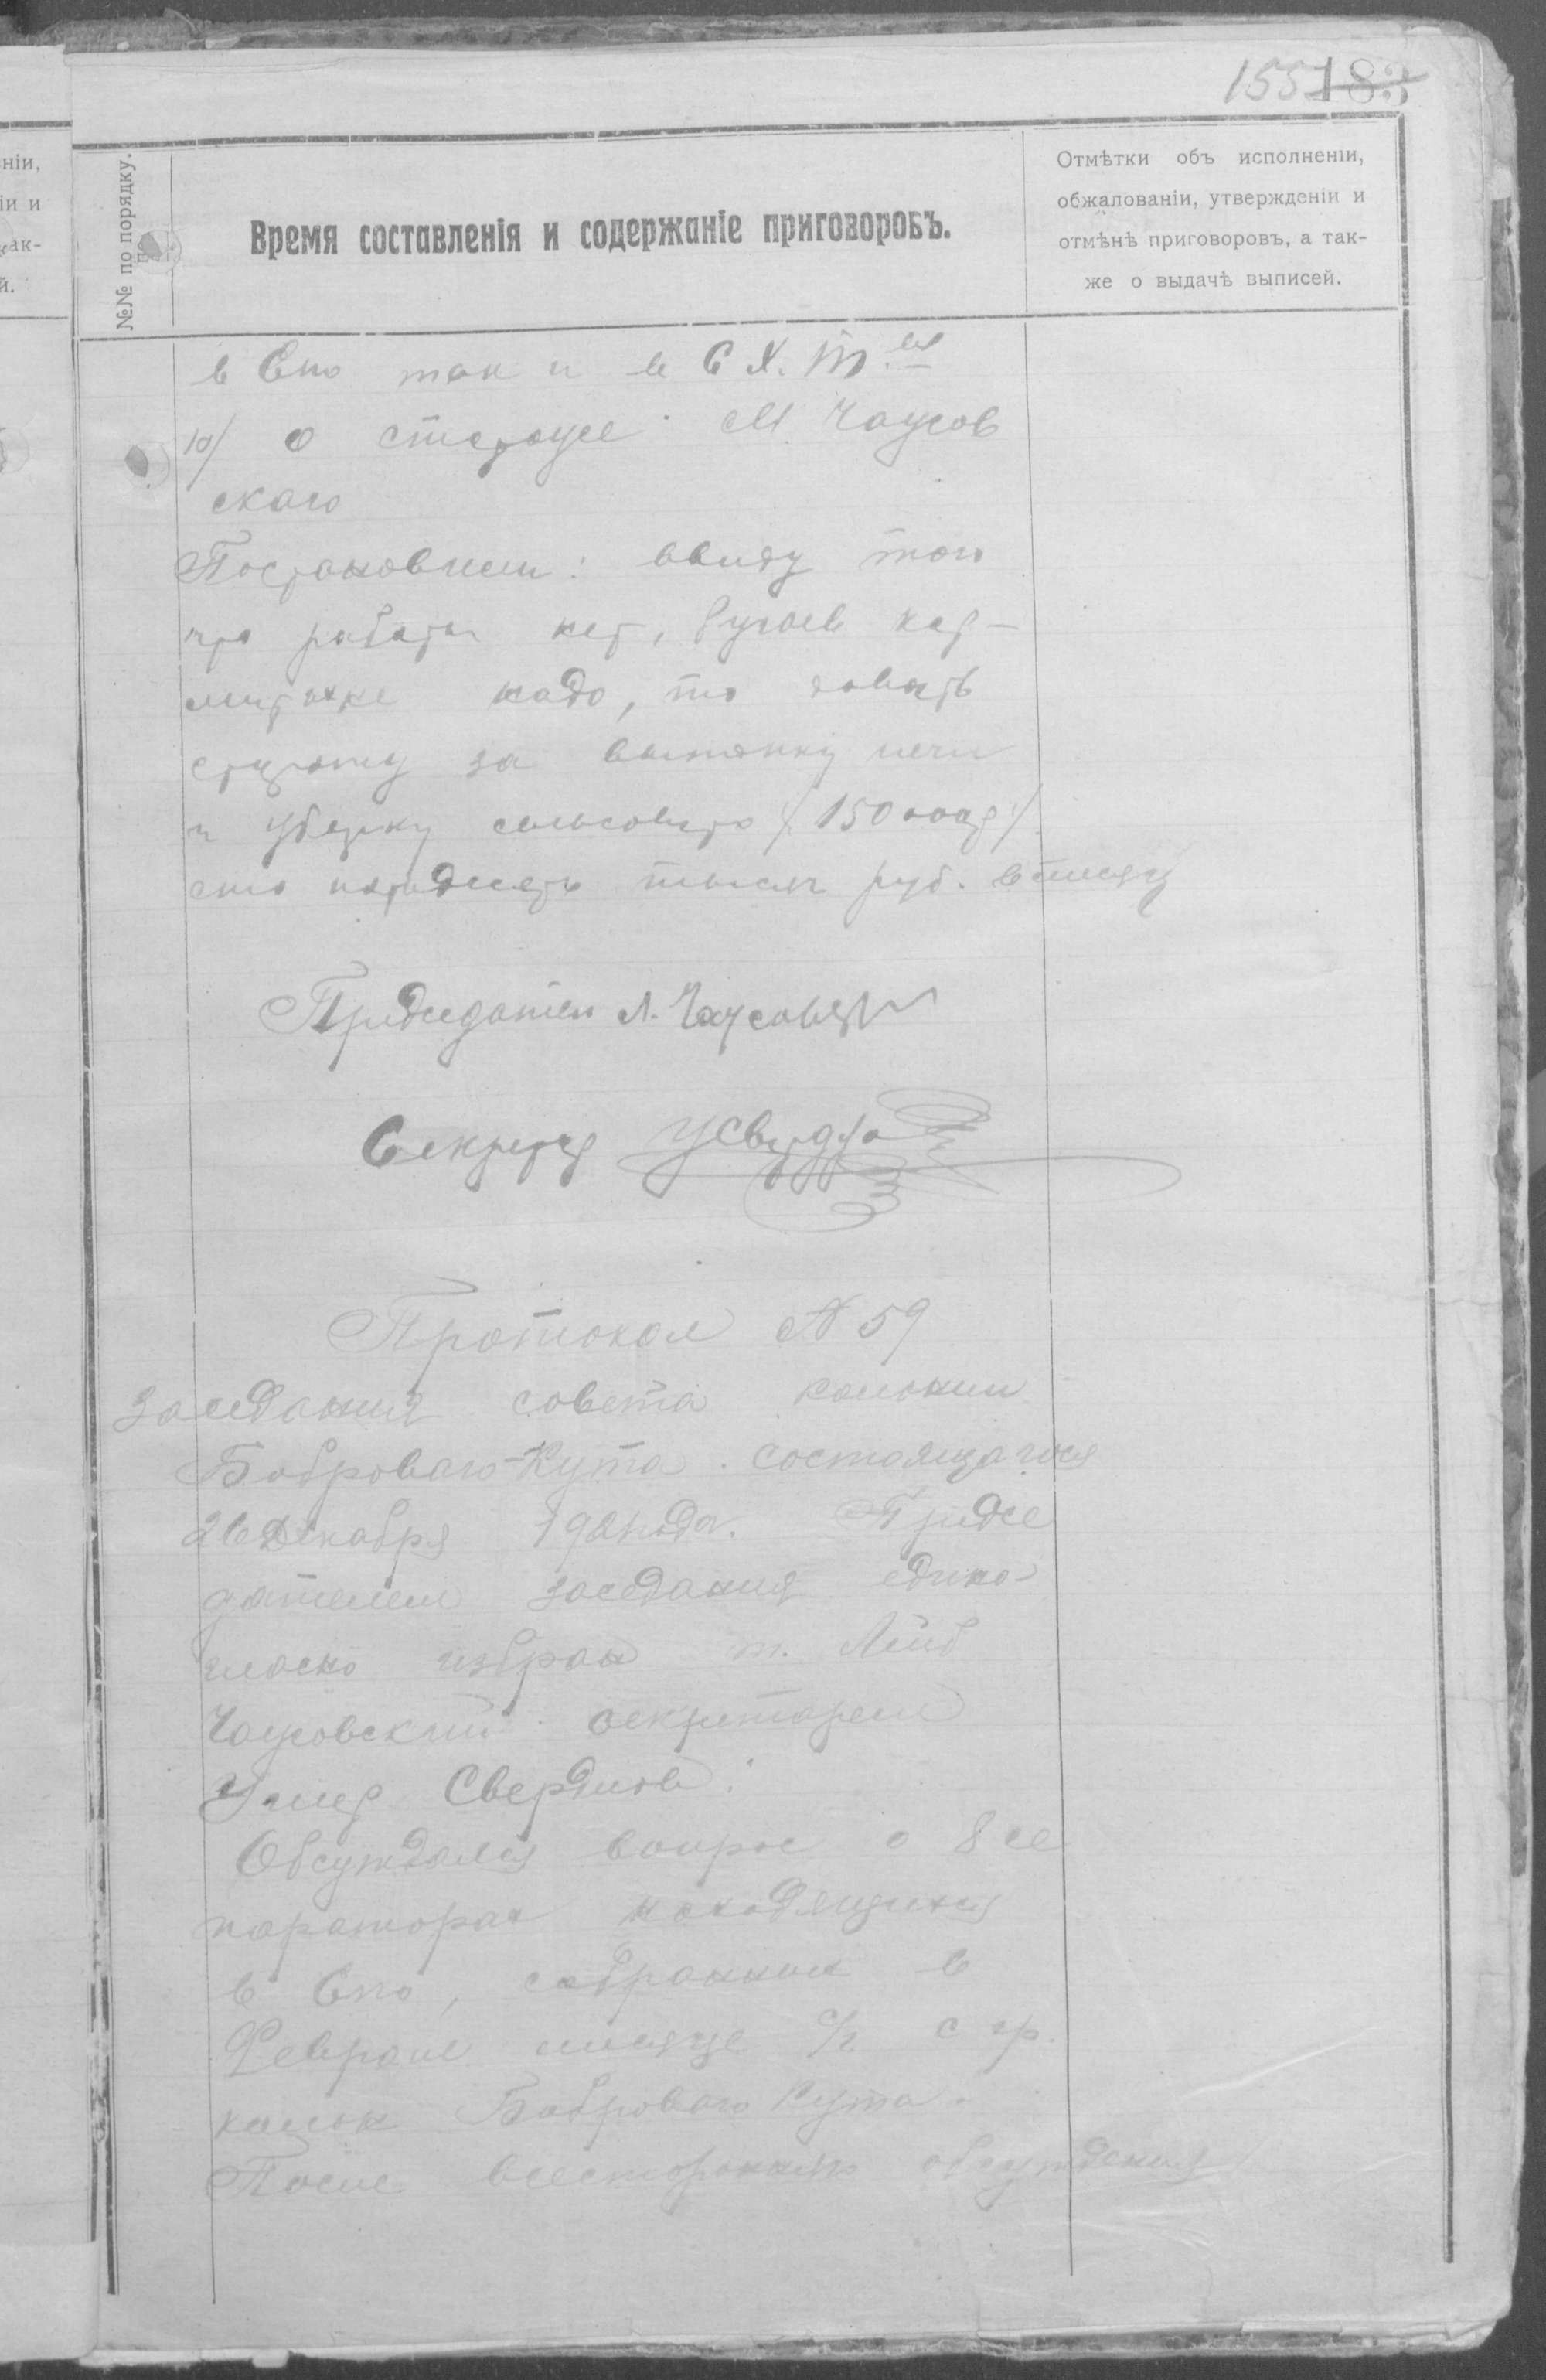 155 183
нiи,
iи и
так-
й.
№№ по порядку.
Время составленiя и содержанiе приговоровъ.
Отмѣтки объ исполненiи,
обжалованiи, утвержденiи и
отмѣнѣ приговоровъ, а так-
же о выдачѣ выписей.
в Спо так и в С Х. Т.ве
10/ о стороже М. Чаусов
скаго
Постановили: ввиду того
что работы нет,
надо, то давать
сторожу за печи
и уборку сельсовета /150000р/
сто пятьдесят тысяч руб. в месяц
Председатель Л. Чаусовск
Секретар УСвердло
Протокол N 59
Заседания совета колонии
Бобрового-Кута состоящагося
26 декабря 1921 года. Предсе
дателем заседания едино-
гласно избран т. Лейб
Чаусовский секретарем
Свердлов.
Обсуждался вопрос о 8 се
параторах находящихся
в Спо, собранных в
Феврале месяце с/г с гр.
колон Бобрового Кута.
После всесторонняго обсуждения